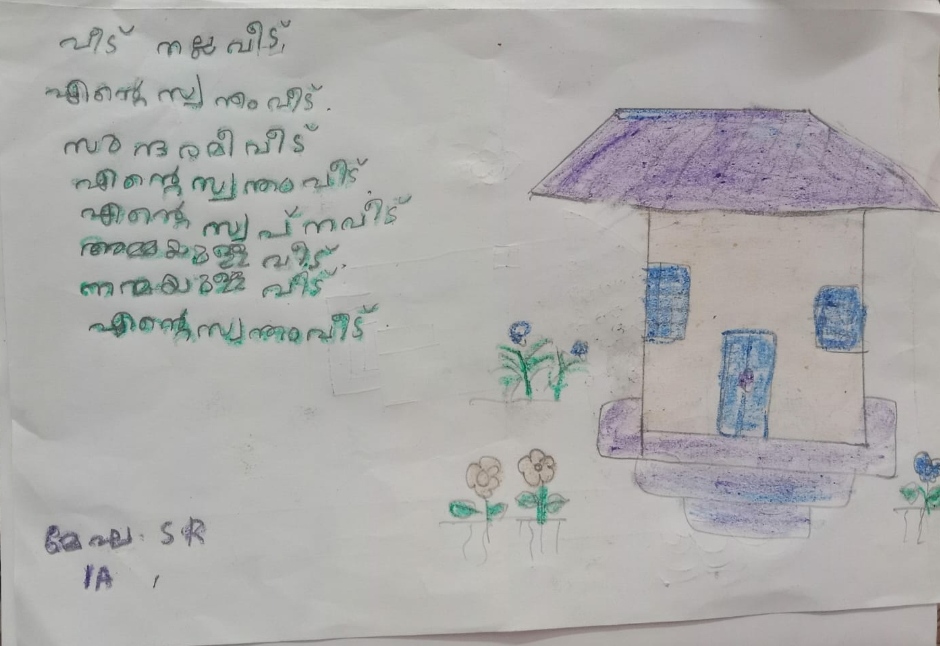 വീട് നല്ല വീട്.
എന്റെ സ്വന്തം വീട്.
സുന്ദരമീ വീട്
എന്റെ സ്വന്തം വീട്.
എന്റെ സ്വപ്നവീട്
അമ്മയുള്ള വീട്.
നന്മയുള്ള വീട്
എന്റെ സ്വന്തം വീട്.
S R
1A